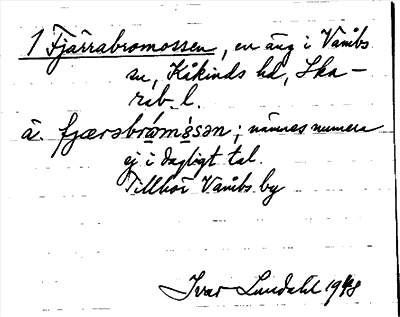 1 Fjärrabromossen, en äng i Våmbs
sn, Kåkinds hd, Ska-
rab. l.
ä. fjærabrómòsən; nämnes numera
ej i dagligt tal.
Tillhör Våmbs by
Ivar Lundahl 1948